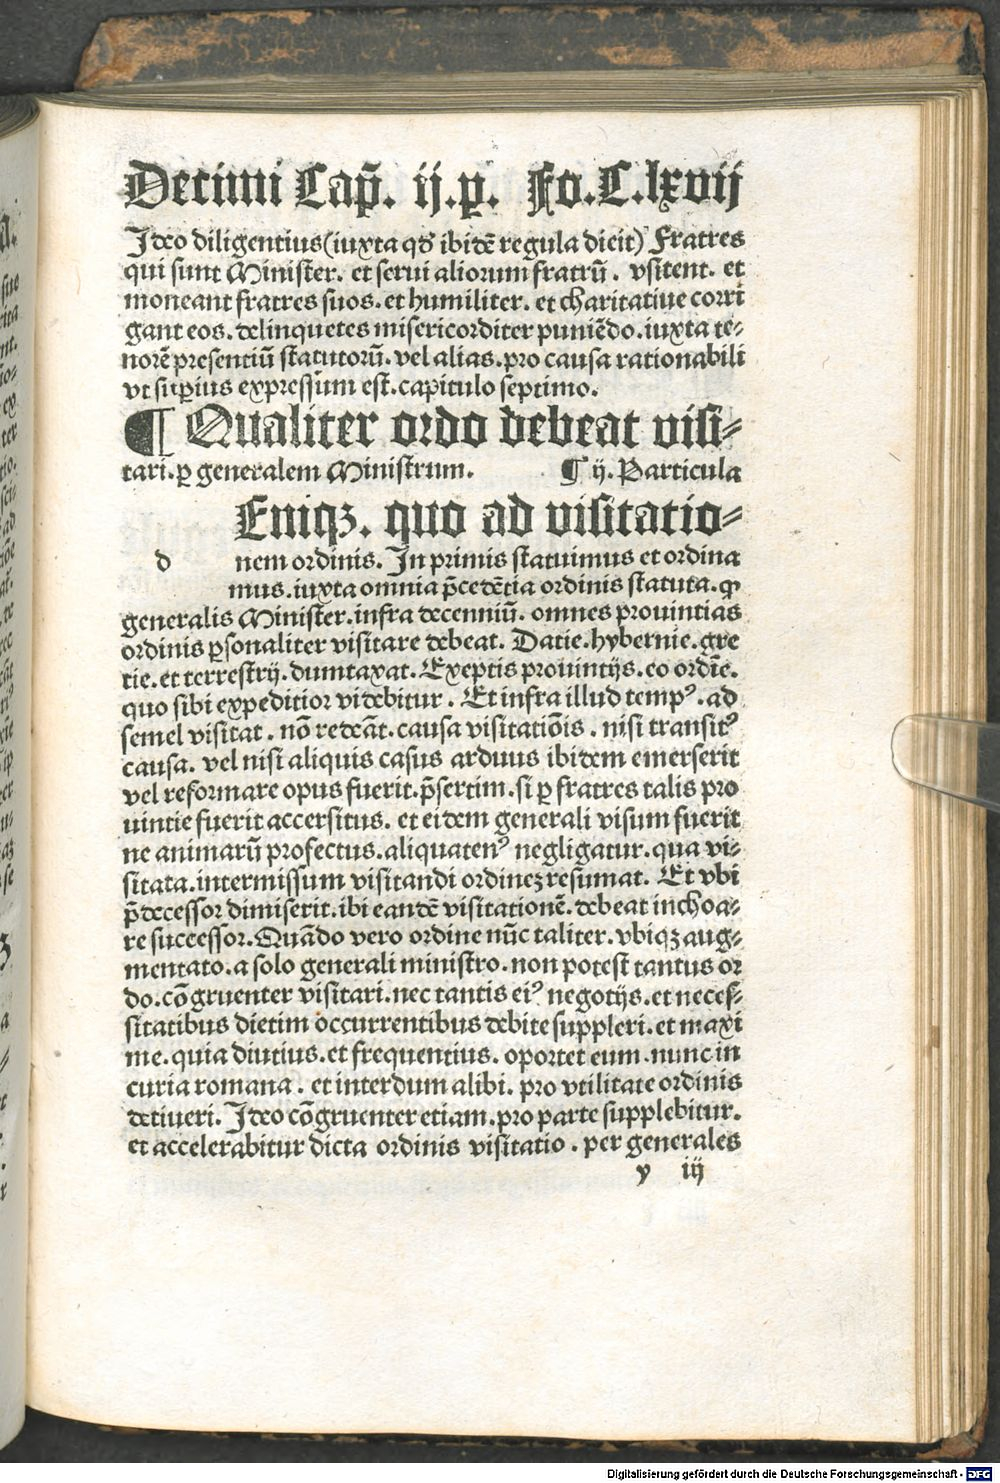 Decimi Cap̄. ij. ꝑ. Fo. C. lxvij
Ideo diligentius (iuxta qđ ibidē regula dicit) Fratres
qui sunt Minister. et serui aliorum fratrū. vsitent. et
moneant fratres suos. et humiliter. et charitatiue corri
gant eos. delinquetes misericorditer puniēdo. iuxta te⸗
norē presentiū statutorū. vel alias. pro causa rationabili
vt suꝑius expressum est. capitulo septimo.
¶ Qualiter ordo debeat visi⸗
tari. ꝑ generalem Ministrum. ¶ ij. Particula
Eniqꝫ. quo ad visitatio⸗
d nem ordinis. In primis statuimus et ordina
mus. iuxta omnia p̄cedētia ordinis statuta. ꝙ
generalis Minister. infra decenniū. omnes prouintias
ordinis ꝑsonaliter visitare debeat. Datie. hybernie. gre
tie. et terrestrij. dumtaxat. Exeptis prouintijs. eo ordīe.
quo sibi expeditior videbitur. Et infra illud tempꝰ. ad
semel visitat. nō redeāt. causa visitatiōis. nisi transitꝰ
causa. vel nisi aliquis casus arduus ibidem emerserit
vel reformare opus fuerit. p̄sertim. si ꝑ fratres talis pro
uintie fuerit accersitus. et eidem generali visum fuerit
ne animarū profectus. aliquatenꝰ negligatur. qua vi⸗
sitata. intermissum visitandi ordineꝫ resumat. Et vbi
p̄decessor dimiserit. ibi eandē visitationē. debeat inchoa⸗
re successor. Quādo vero ordine nūc taliter. vbiqꝫ aug⸗
mentato. a solo generali ministro. non potest tantus or
do. cōgruenter visitari. nec tantis eiꝰ negotijs. et neces⸗
sitatibus dietim occurrentibus debite suppleri. et maxi
me. quia diutius. et frequentius. oportet eum. nunc in
curia romana. et interdum alibi. pro vtilitate ordinis
detiueri. Ideo cōgruenter etiam. pro parte supplebitur.
et accelerabitur dicta ordinis visitatio. per generales
y iij
Digitalisierung gefördert durch die Deutsche Forschungsgemeinschaft - DFG